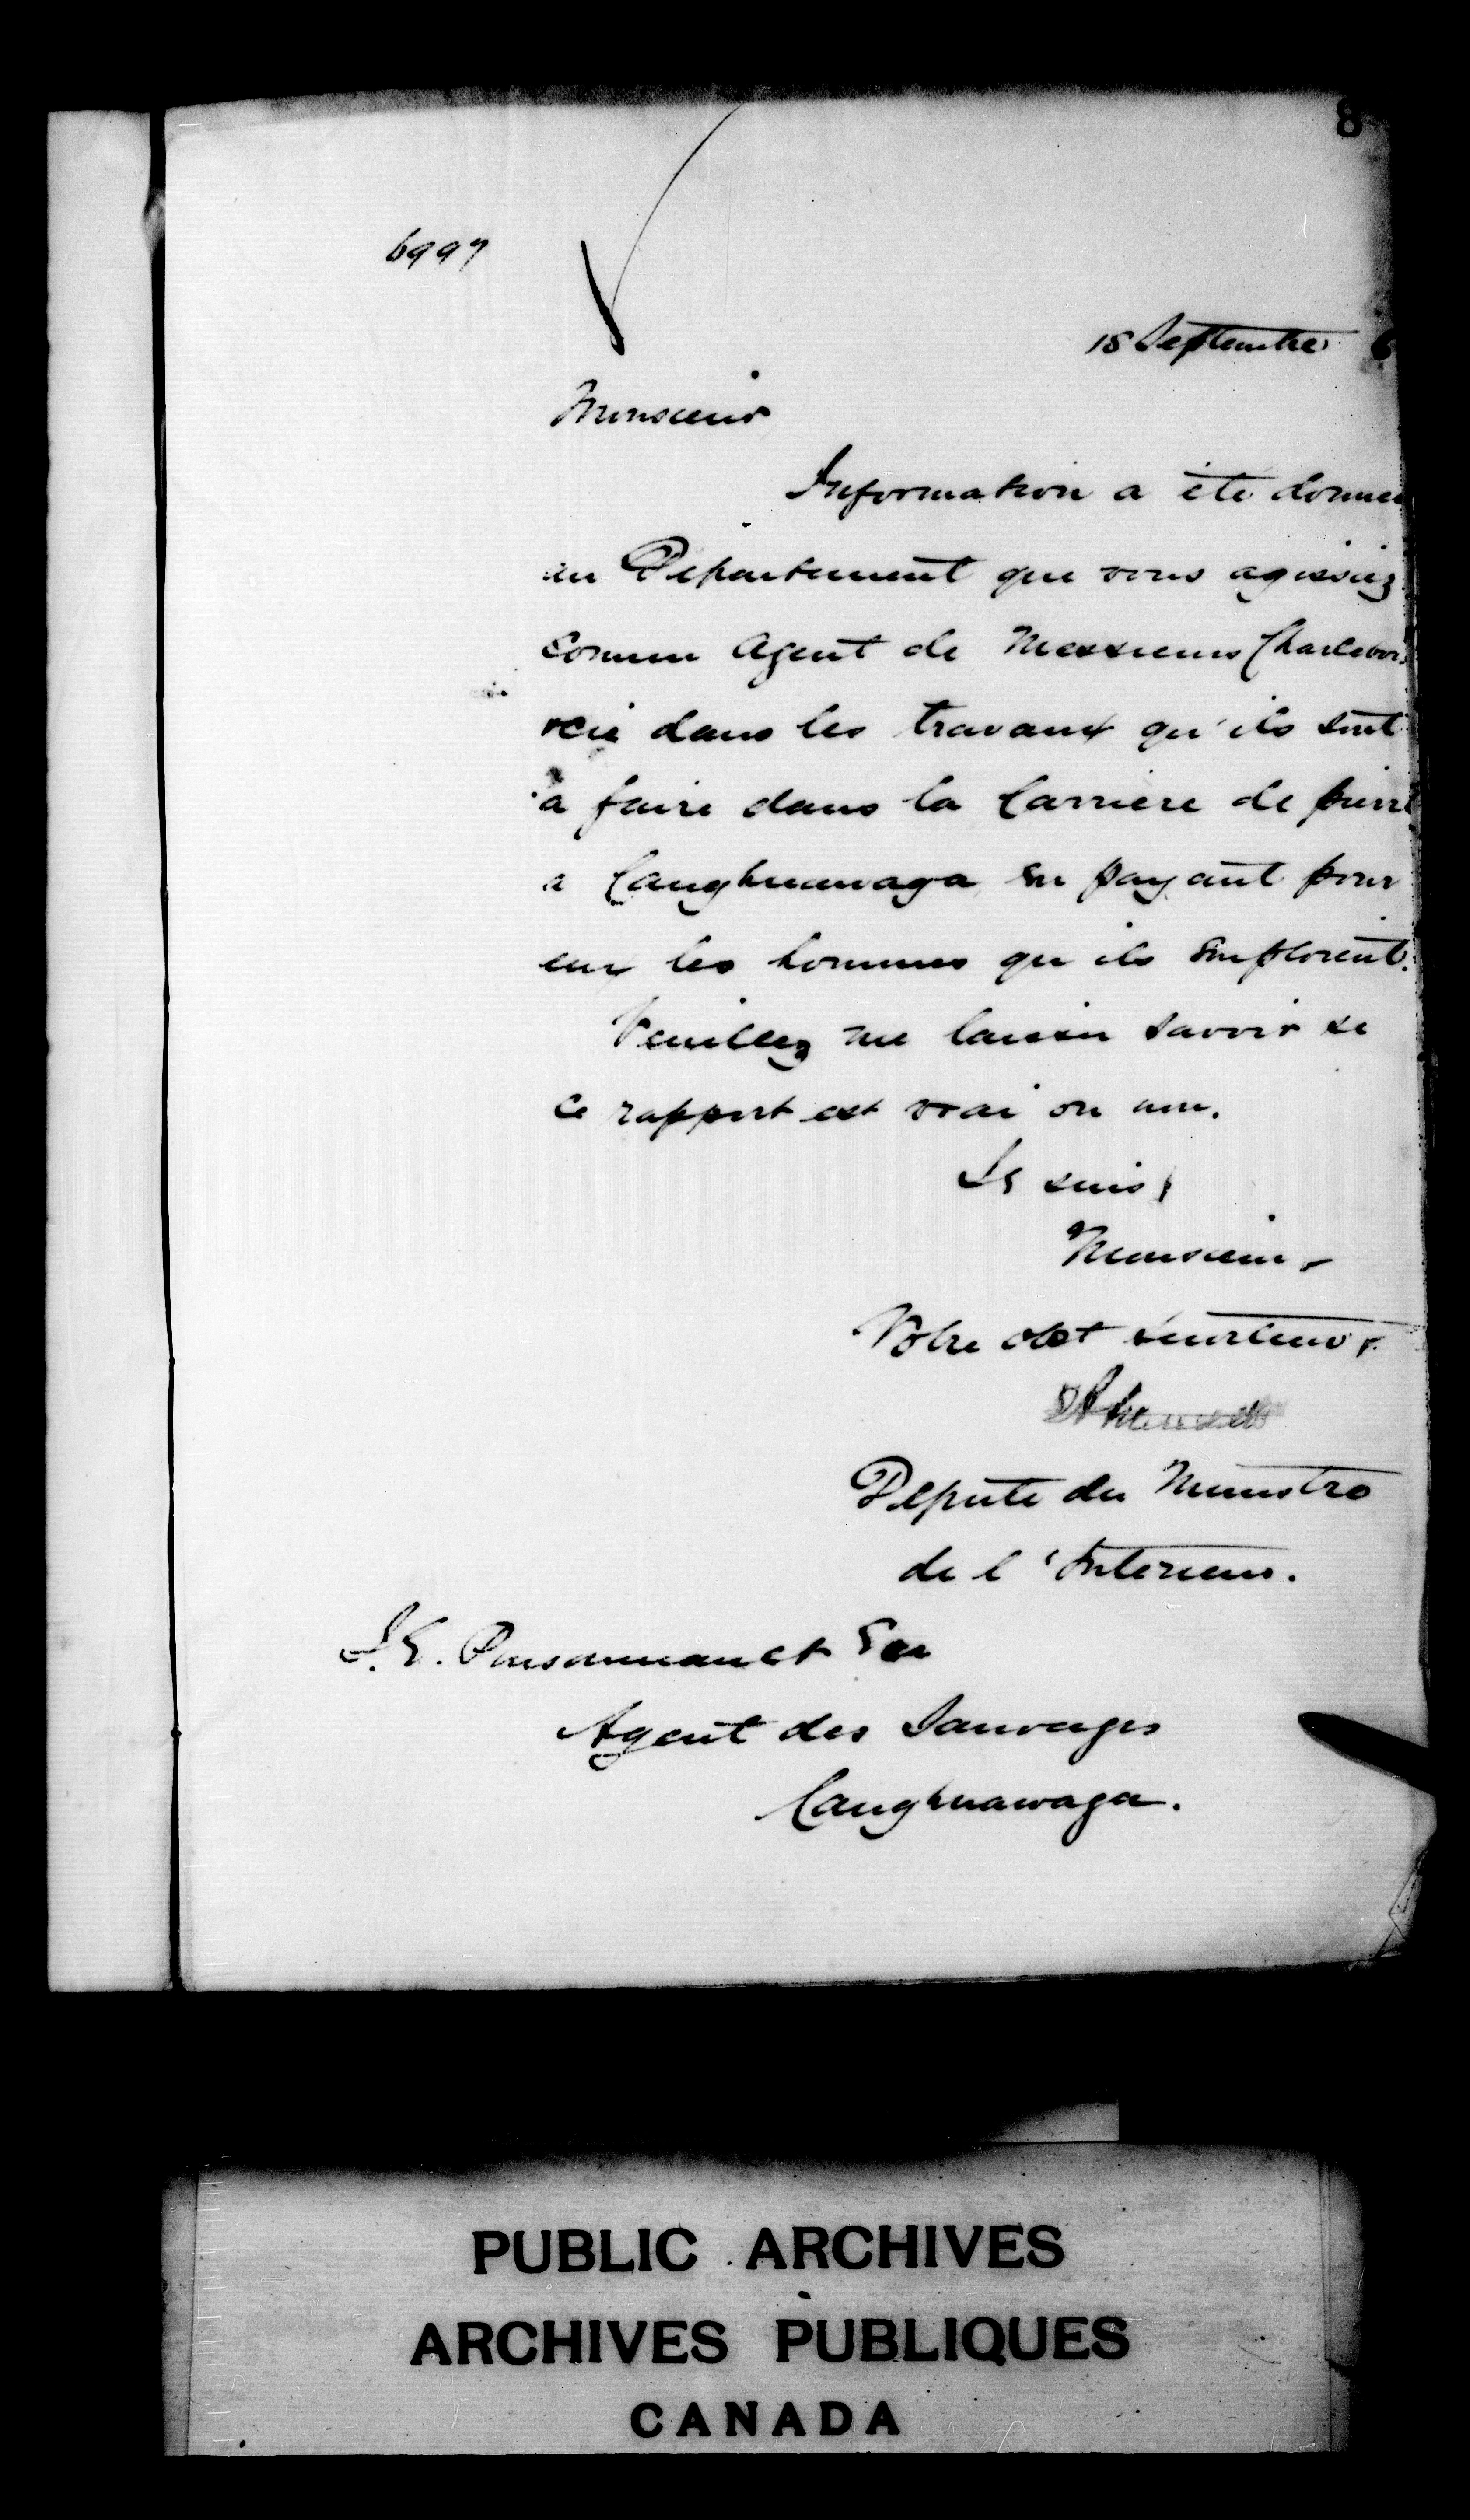 8
6997
18 Septembre 6
Monsieur
Information a été donnee
au Département que vous agissiez
comme Agent de Messieurs Charlebois
&Cie dans les travaux qu'ils sont
à faire dans la Carriere de pierre
a Caughnawaga en payant pour
eux les hommes qu'ils emploient.
Veuillez me laisser savoir si
ce rapport est vrai ou non.
Je suis,
Monsieur,
Votre obt serviteur,
Député du Ministre
de l'Interieur.
J. E. Pinsonneault Ecr
Agent des Sauvages
Caughnawaga.
PUBLIC ARCHIVES
ARCHIVES PUBLIQUES
CANADA